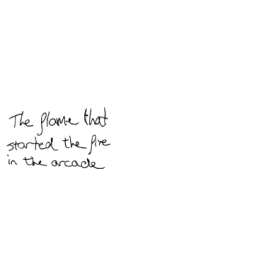 The flame that
started the fire
in the arcade